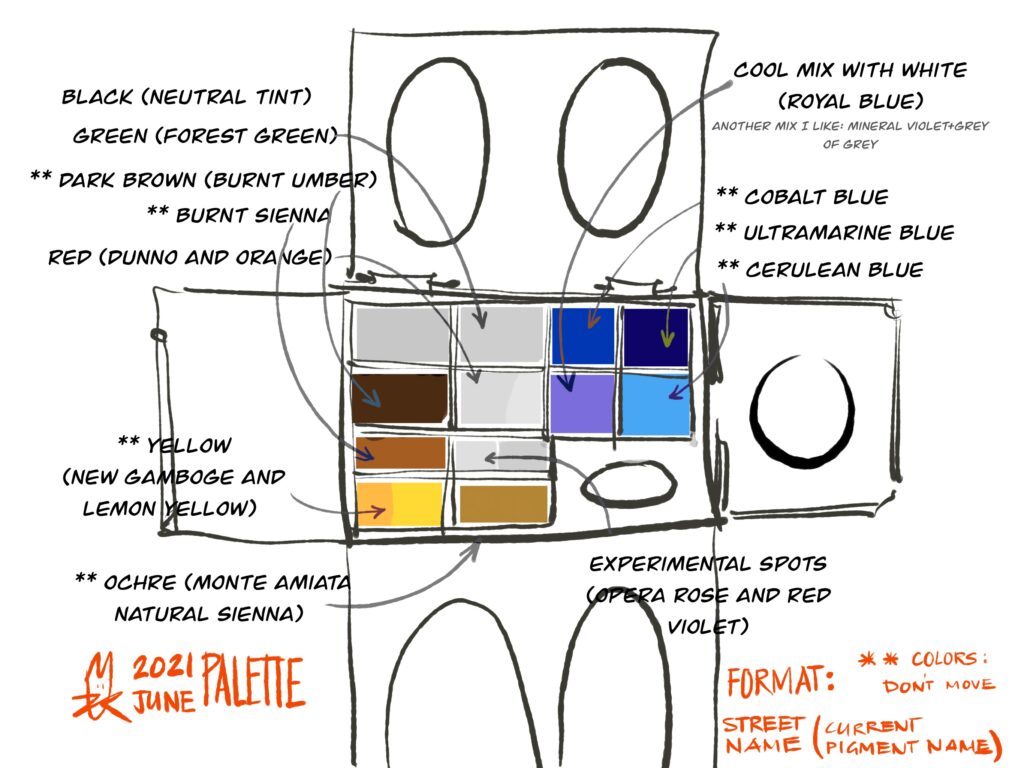 BLACK (NEUTRAL TINT)
GREEN (FOREST GREEN)
** DARK BROWN (BURNT UMBER)
** BURNT SIENNA
RED (DUNNO AND ORANGE)
COOL MIX WITH WHITE
(ROYAL BLUE)
ANOTHER MIX I LIKE: MINERAL VIOLET+GREY
OF GREY
** COBALT BLUE
** ULTRAMARINE BLUE
** CERULEAN BLUE
** YELLOW
(NEW GAMBOGE AND
LEMON YELLOW)
** OCHRE (MONTE AMIATA
NATURAL SIENNA)
EXPERIMENTAL SPOTS
(OPERA ROSE AND RED
VIOLET)
2021 PALETTE
JUNE
FORMAT:
** COLORS:
DON'T MOVE
STREET NAME (CURRENT PIGMENT NAME)